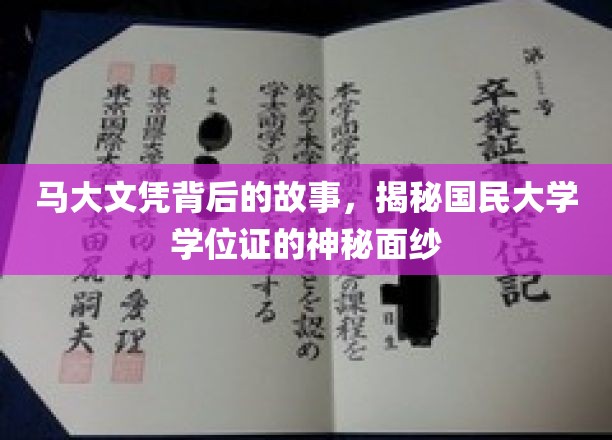 马大文凭背后的故事，揭秘国民大学
学位证的神秘面纱
第 号
卒業証書 学位記
日生
本学商学部 定の課程を
修めて本学 ことを認め
学士(商学)の学 する
東京国際大学
東京国際大学長 田尻嗣夫